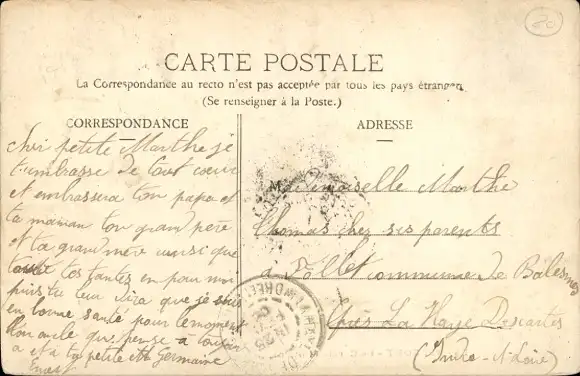 20
CARTE POSTALE
La Correspondance au recto n'est pas acceptée par tous les pays étrangers
(Se renseigner à la Poste.)
CORRESPONDANCE
Cher petite Marthe je
t'embrasse de tout coeur
et embrassera ton papa et
ta maman ton grand père
et ta grand mère ainsi que
toute tes tantes en pour moi
puis tu leur dira que je suis
en bonne santé pour le moment
Ton oncle qui pense à toujour
a et a ta petite Germaine
Ernest
ADRESSE
Mademoiselle Marthe
Thomas chez ses parents
à Follet commune de Balesmes
près La Haye Descartes
(Indre-et-Loire)